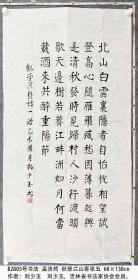 北山白雲裏隱者自怡悅相望始
登高心隨雁飛滅愁因薄暮起興
是清秋發時見歸村人沙行渡頭
歇天邊樹若薺江畔洲如月何當
載酒來共醉重陽節
82805号书法 孟浩然 秋登兰山寄张五 68×138cm
作者：刘少玉 刘少玉，吉林省书法家协会会员。